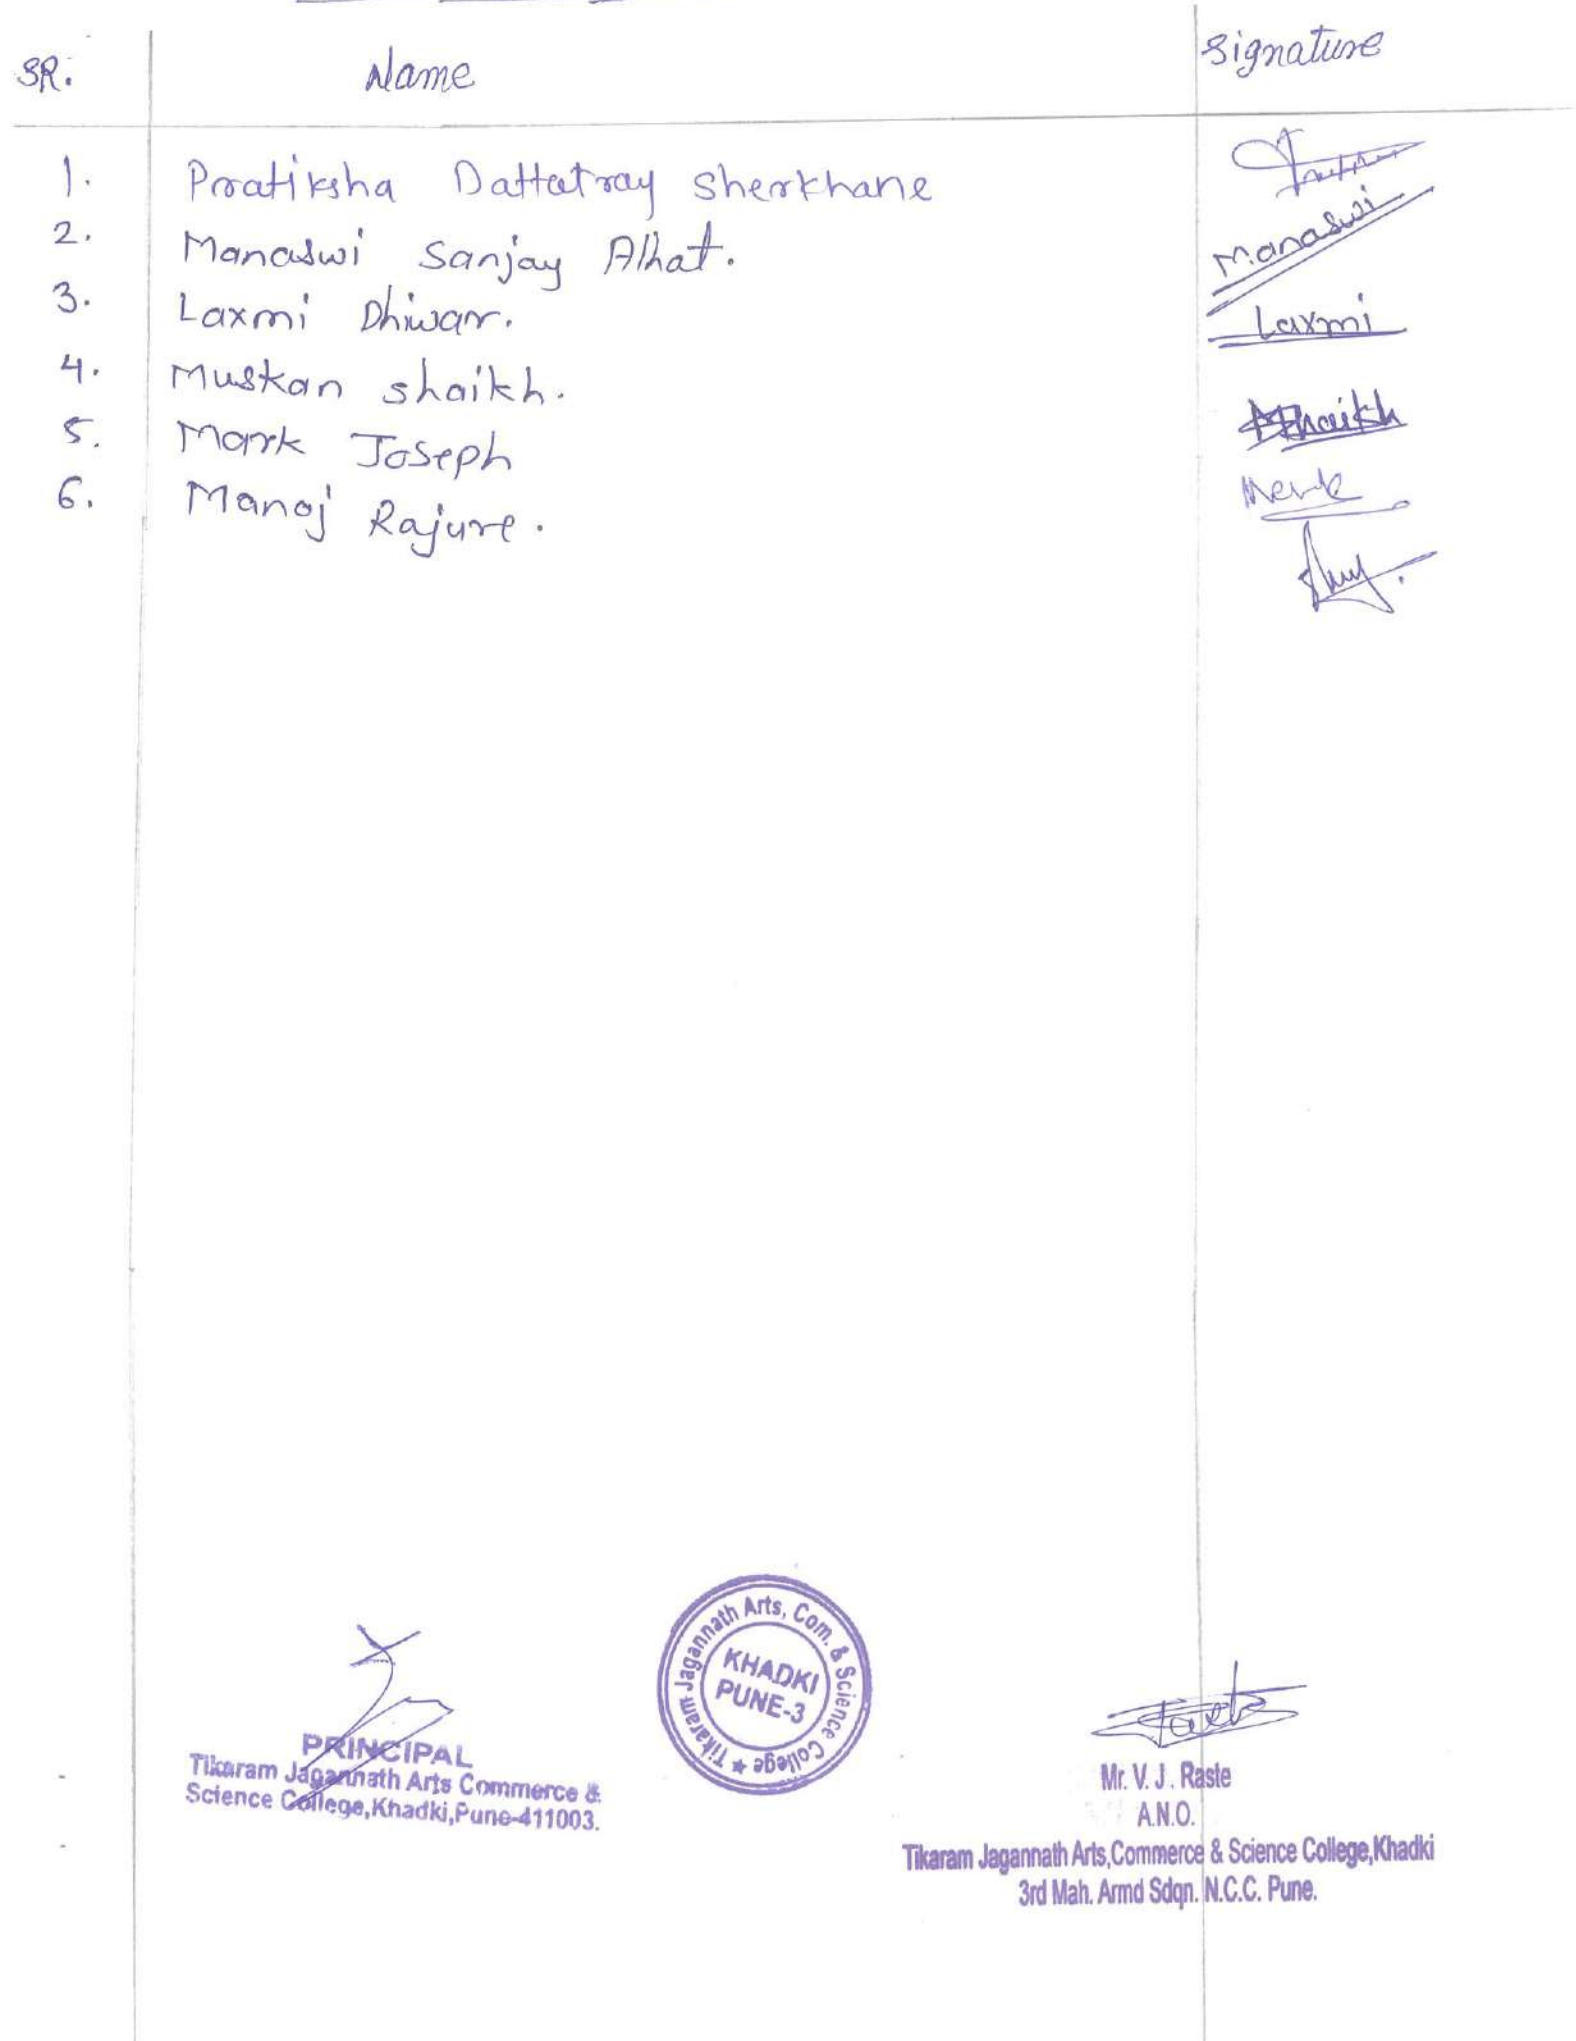 SR. Name Signature
1. Pratiksha Dattatray Sherkhane
2. Manaswi Sanjay Alhat. Manaswi
3. Laxmi Dhiwar. Laxmi
4. Muskan shaikh. Mshaikh
5. Mark Joseph Mark
6. Manoj Rajure.
Tikaram Jagannath Arts, Com. & Science College ★
KHADKI
PUNE-3
PRINCIPAL
Tikaram Jagannath Arts Commerce &
Science College,Khadki,Pune-411003.
Mr. V. J. Raste
A.N.O.
Tikaram Jagannath Arts,Commerce & Science College,Khadki
3rd Mah. Armd Sdqn. N.C.C. Pune.